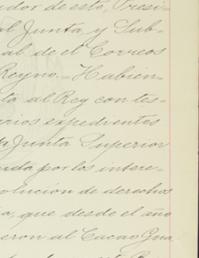 dor de esto, Presi-
al Junta y Sub-
al de el Correos
Reyno. Habien-
ta al Rey con tes-
arios expedientes
Junta Superior
ida por los intere-
olucion de derechos
a, que desde el año
eron al Cacao Gua-